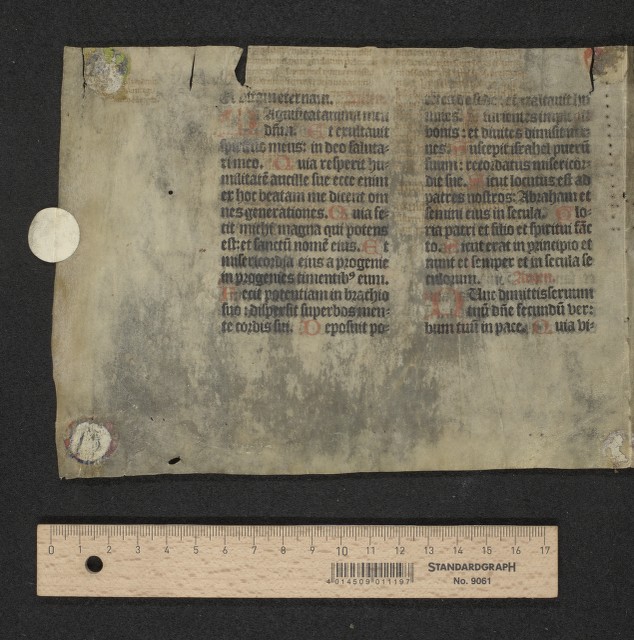 vitam eternam.
Magnificat anima mea
dn̄m. Et exultauit
spiritus meus: in deo saluta-
ri meo. Quia respexit hu-
militatē ancille sue ecce enim
ex hoc beatam me dicent om
nes generationes. Quia fe-
cit michi magna qui potens
est: et sanctū nomē eius. Et
misericordia eius a progenie
in progenies timentibꝰ eum.
Fecit potentiam in brachio
suo: dispersit superbos men-
te cordis sui. Deposuit po-
de sede: et exaltauit hu
miles. Esurientes impleuit
bonis: et diuites dimisit ina-
nes. Suscepit israhel puerū
suum: recordatus misericor-
die sue. Sicut locutus est ad
patres nostros: Abraham et
semini eius in secula. Glo-
ria patri et filio et spiritui sāc
to. Sicut erat in principio et
nunc et semper et in secula se
culorum. Amen.
Nunc dimittis seruum
tuū dn̄e secundū ver-
bum tuū in pace. Quia vi-
0 1 2 3 4 5 6 7 8 9 10 11 12 13 14 15 16 17
4 014509 011197
STANDARDGRAPH
No. 9061